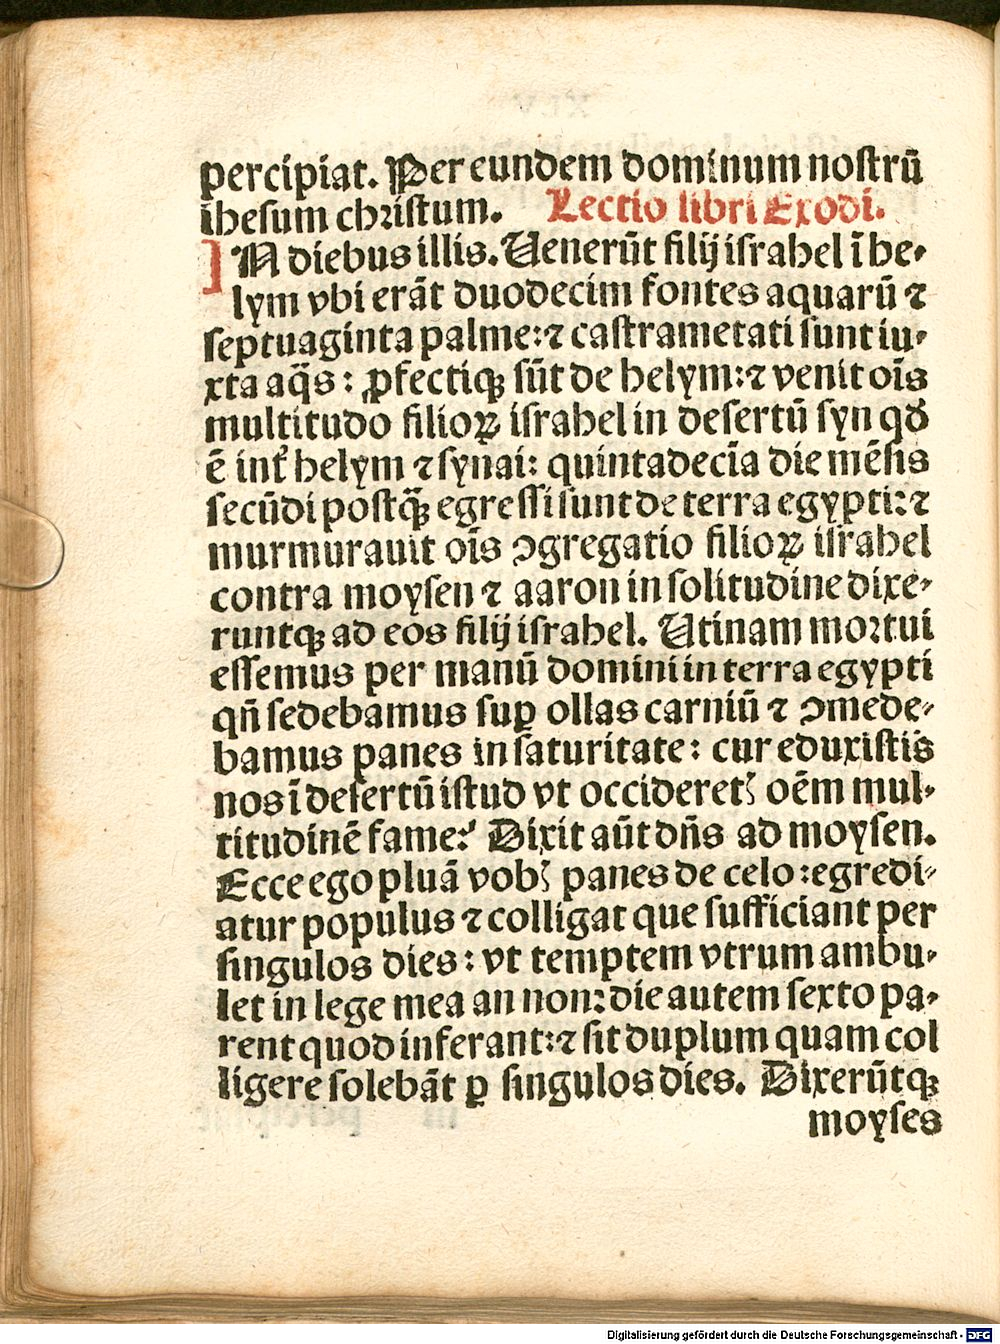 percipiat. Per eundem dominum nostrū
ihesum christum. Lectio libri Exodi.
IN diebus illis. Uenerūt filij israhel ī he⸗
lym vbi erāt duodecim fontes aquarū ⁊
septuaginta palme: ⁊ castrametati sunt iu⸗
xta aq̄s: ꝓfectiqꝫ sūt de helym: ⁊ venit oīs
multitudo filioꝝ israhel in desertū syn qđ
ē int̉ helym ⁊ synai: quintadecīa die mēsis
secūdi postqͣꝫ egressi sunt de terra egypti: ⁊
murmurauit oīs ↄgregatio filioꝝ israhel
contra moysen ⁊ aaron in solitudine dixe⸗
runtqꝫ ad eos filij israhel. Utinam mortui
essemus per manū domini in terra egypti
qn̄ sedebamus suꝑ ollas carniū ⁊ ↄmede⸗
bamus panes in saturitate: cur eduxistis
nos ī desertū istud vt occideretꝭ oēm mul⸗
titudinē fame? Dixit aūt dn̄s ad moysen.
Ecce ego pluā vobꝭ panes de celo: egredi⸗
atur populus ⁊ colligat que sufficiant per
singulos dies: vt temptem vtrum ambu⸗
let in lege mea an non: die autem sexto pa⸗
rent quod inferant: ⁊ sit duplum quam col
ligere solebāt ꝑ singulos dies. Dixerūtqꝫ
moyses
Digitalisierung gefördert durch die Deutsche Forschungsgemeinschaft - DFG